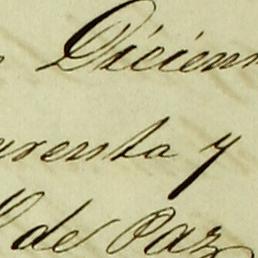 Diciem
arenta y
de Paz